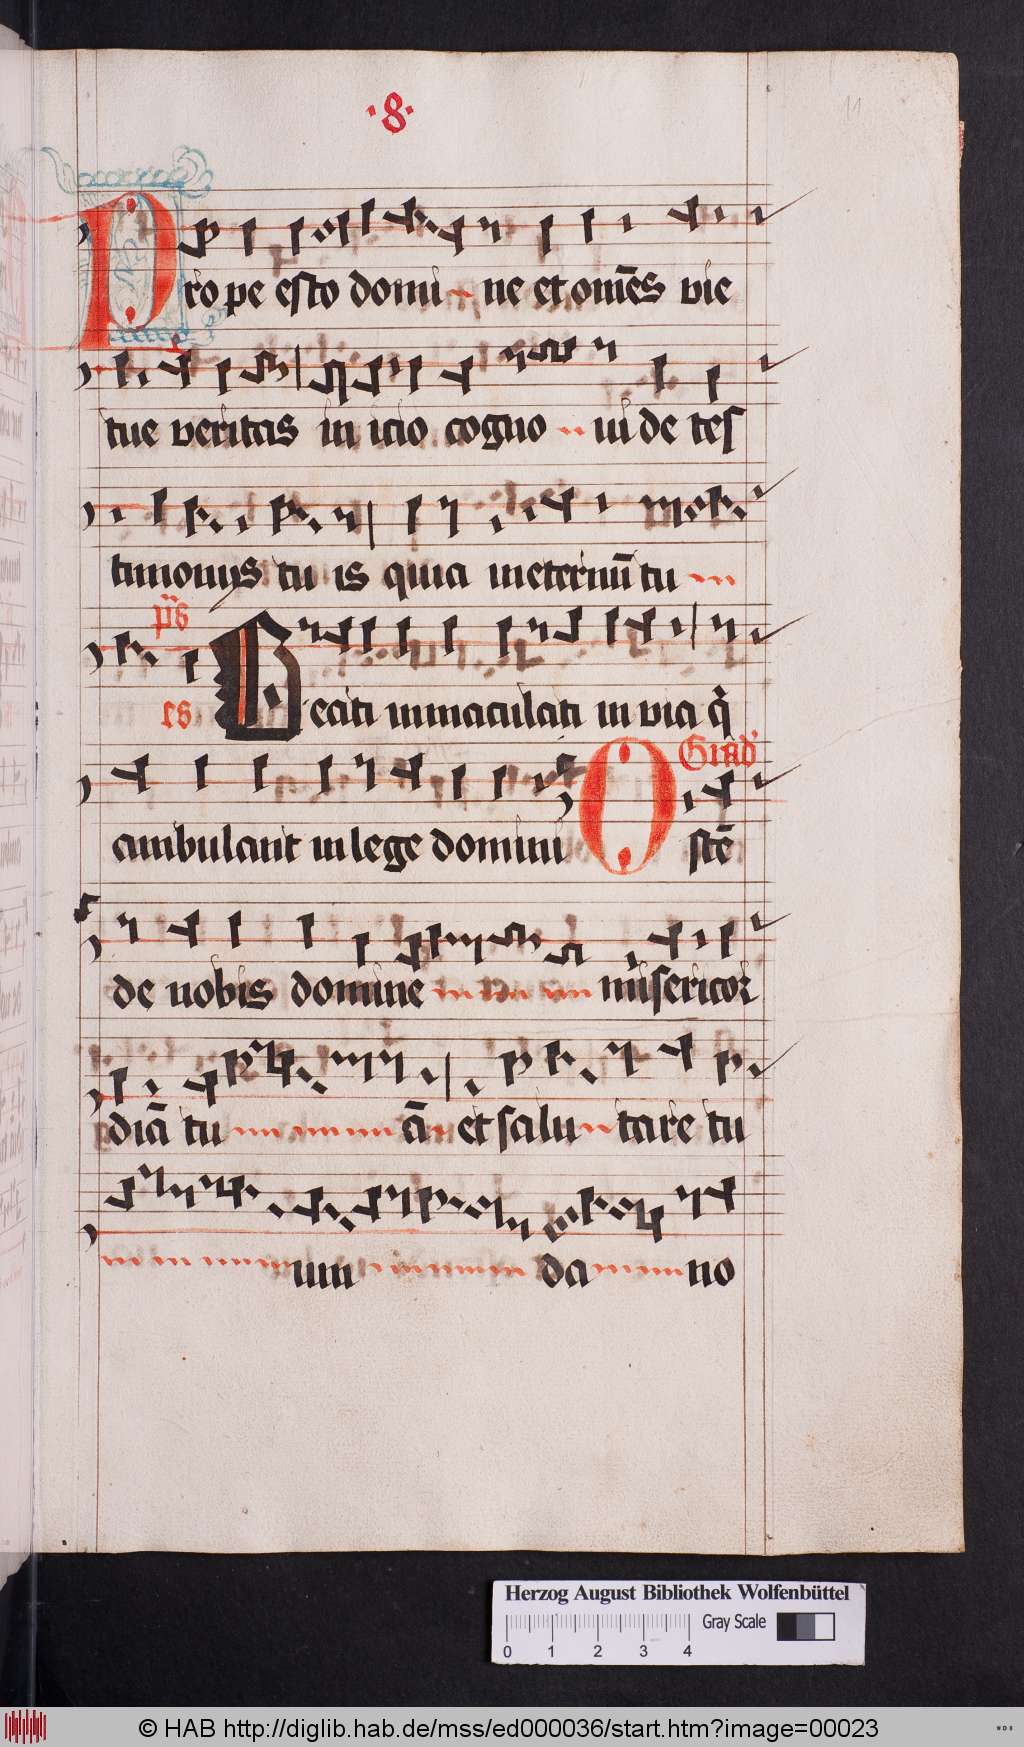 ·8·
11
Prope esto domi ne et om̄es vie
tue veritas in icio cogno ui de tes
timonijs tu is quia in eternū tu
pˢ̄
es Beati immaculati in via q̄
Grad'
ambulant in lege domini Ostē
de nobis domine misericor
diā tu ā et salu tare tu
um da no
Herzog August Bibliothek Wolfenbüttel
Gray Scale
0 1 2 3 4
© HAB http://diglib.hab.de/mss/ed000036/start.htm?image=00023